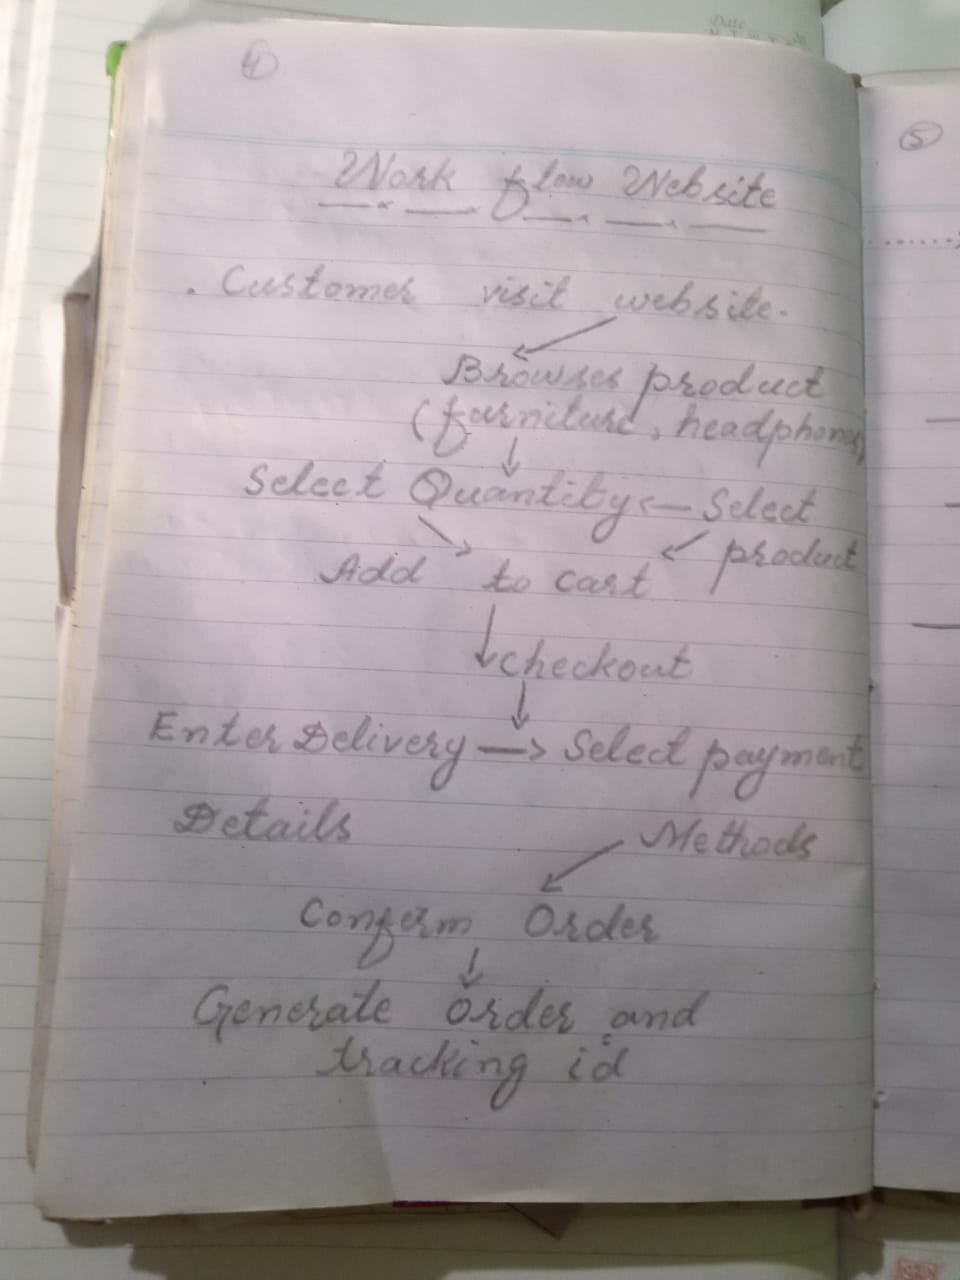 4
Work flow Website
. Customer visit website.
Browses product
(furniture, headphones)
Select Quantity <— Select
product
Add to cart
checkout
Enter Delivery —> Select payment
Details
Methods
Confirm Order
Generate order and
tracking id
Date
5